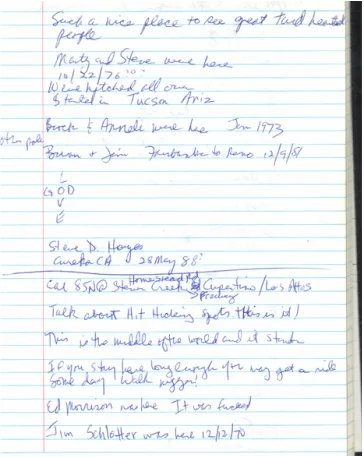 Such a nice place to see great kind hearted
people
Marty and Steve were here
10/22/76
We've hitched all over
Started in Tucson Ariz
Brock & were here Jan 1973
other pole
+ Jim Fairbanks to Reno 12/9/81
L
GOD
V
E
Steve D. Hayes
Eureka CA 28 May 88
Homestead Rd
Cal 85N@ Stevens Creek & Cupertino/Los Altos
> Freeway
Talk about Hit Hiking spots this is it!
This is the middle of the world and it stinks
If you stay here long enough you may get a ride
Some day
Ed Morrison was here It was fucked
Jim Schlotter was here 12/12/70